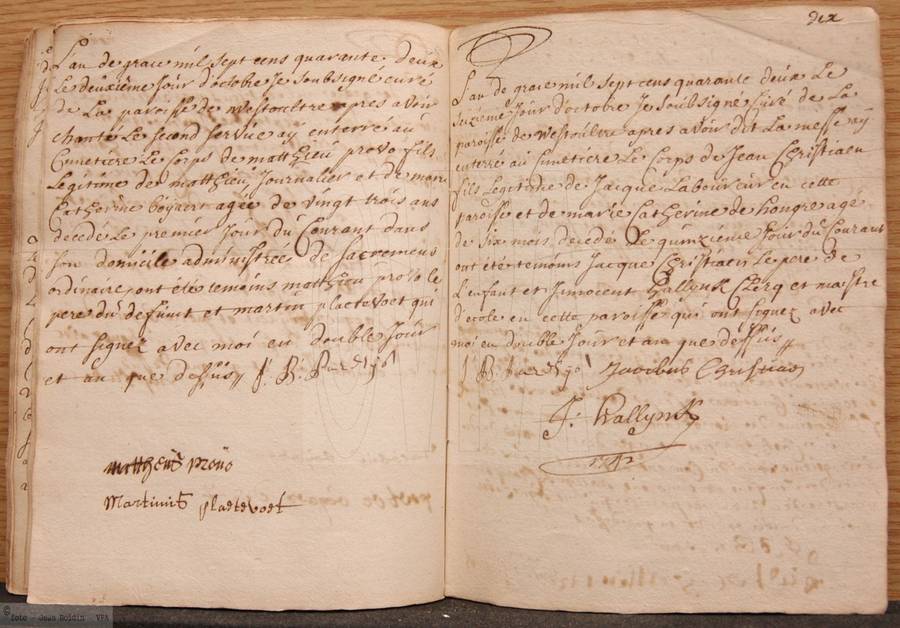 L'an de grace mil sept cens quarante deux
Le deuxième Jour d'octobe Je soubsigné curé
de La paroisse de Westoultre apres avoir
chanté Le second service ay enterré au
Cimetiere Le Corps de matthieu provo fils
Legitime de matthieu Journalier et de marie
Catherine boyaert agée de vingt trois ans
decedé Le premier Jour du Courant dans
son domicile administrée de sacremens
ordinaire ont étés temoins matthieu provo le
pere du defunt et martin plaetevoet qui
ont signez avec moi en double Jour
et an que dessus
matthens provo
Martinus plaetevoet
dix
L'an de grace mil sept cens quarante deux Le
seizième Jour d'octobe Je Soubsigné Curé de La
paroisse de Westoultre apres avoir dit La messe ay
enterré au Cimetiere Le Corps de Jean Christiaen
fils Legitime de Jacque Laboureur en cette
paroisse et de marie Catherine de hongre agé
de six mois decedé Le quinzième Jour du Courant
ont étés temoins Jacque Christiaen Le pere de
L'enfant et Innocent Wallynck Clerq et maistre
d'ecole en cette paroisse qui ont signez avec
moi en double Jour et an que dessus
Jacobus Christiaen
J: Wallynck
1742
© foto - Jean Roidin VFA